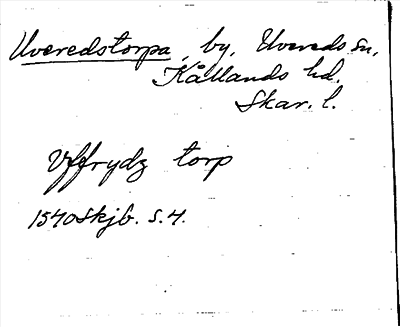 Uveredstorpa, by, Uvereds sn,
Kållands hd.
Skar. l.
Vffrydz torp
1540 Skjb. s. 4.